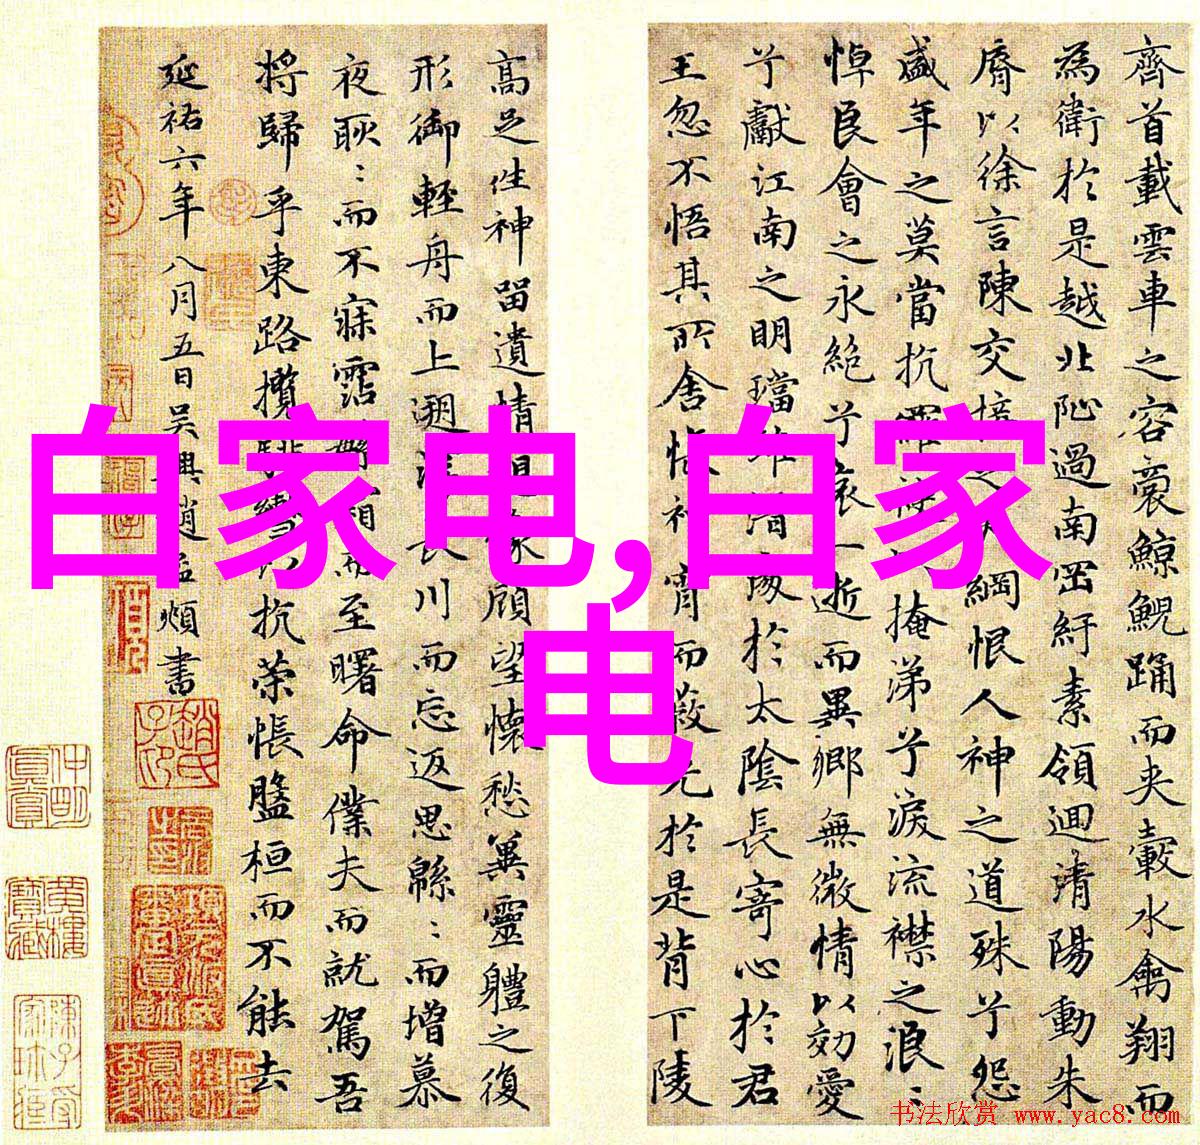 齊首載雲車之容裔鯨鯢踊而夾轂水禽翔而
為衛於是越北沚過南岡紆素領迴清陽動朱
脣以徐言陳交接之大綱恨人神之道殊兮怨
盛年之莫當抗羅袂以掩涕兮淚流襟之浪:
悼良會之永絕兮哀一逝而異鄉無微情以効愛
兮獻江南之明璫雖潛處於太陰長寄心於君
王忽不悟其所舍悵神宵而蔽光於是背下陵
高足往神留遺情想像顧望懷愁冀靈體之復
形御輕舟而上遡浮長川而忘返思緜:而增慕
夜耿:而不寐霑繁霜而至曙命僕夫而就駕吾
將歸乎東路攬騑轡以抗策悵盤桓而不能去
延祐六年八月五日吳興趙孟頫書
白家电,白家
电
书法欣赏 www.yac8.com